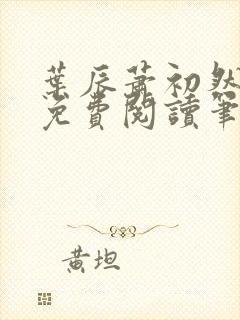 葉辰蕭初然
免費閱讀筆
黃坦